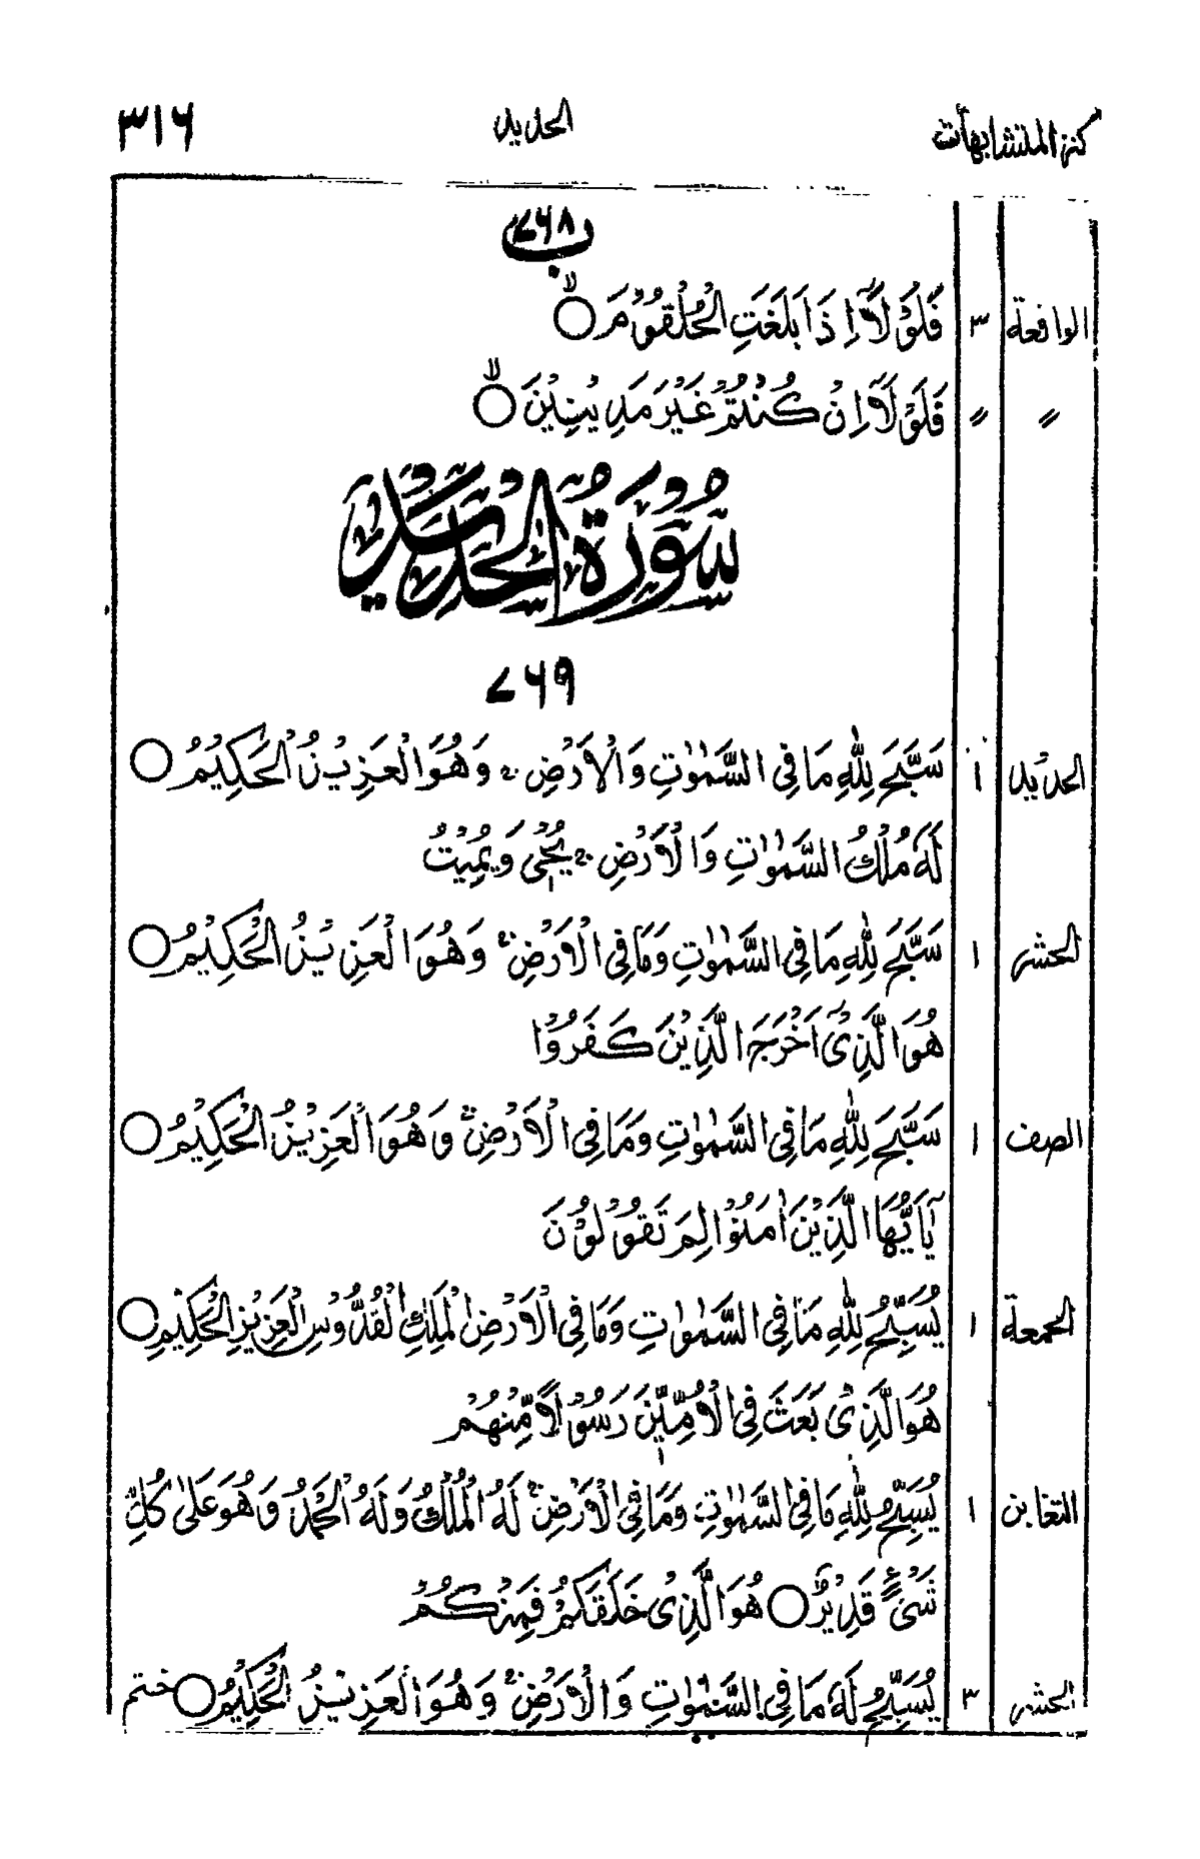 كنز المتشابهات الحديد ٣١٦
ب ٧٦٨
الواقعة ٣ فَلَوْلَآ اِذَا بَلَغَتِ الْحُلْقُوْمَ ۙ○
〃 〃 فَلَوْلَآ اِنْ كُنْتُمْ غَيْرَ مَدِيْنِيْنَ ۙ○
سُوْرَةُ الْحَدِيْدِ
٧٦٩
الحديد ١ سَبَّحَ لِلّٰهِ مَا فِی السَّمٰوٰتِ وَالْاَرْضِ ۚ وَهُوَ الْعَزِيْزُ الْحَكِيْمُ ○
لَهٗ مُلْكُ السَّمٰوٰتِ وَالْاَرْضِ ۚ يُحْیٖ وَيُمِيْتُ
الحشر ١ سَبَّحَ لِلّٰهِ مَا فِی السَّمٰوٰتِ وَمَا فِی الْاَرْضِ ۚ وَهُوَ الْعَزِيْزُ الْحَكِيْمُ ○
هُوَ الَّذِیْٓ اَخْرَجَ الَّذِيْنَ كَفَرُوْا
الصف ١ سَبَّحَ لِلّٰهِ مَا فِی السَّمٰوٰتِ وَمَا فِی الْاَرْضِ ۚ وَهُوَ الْعَزِيْزُ الْحَكِيْمُ ○
يٰٓاَيُّهَا الَّذِيْنَ اٰمَنُوْا لِمَ تَقُوْلُوْنَ
الجمعة ١ يُسَبِّحُ لِلّٰهِ مَا فِی السَّمٰوٰتِ وَمَا فِی الْاَرْضِ الْمَلِكِ الْقُدُّوْسِ الْعَزِيْزِ الْحَكِيْمِ ○
هُوَ الَّذِیْ بَعَثَ فِی الْاُمِّيّٖنَ رَسُوْلًا مِّنْهُمْ
التغابن ١ يُسَبِّحُ لِلّٰهِ مَا فِی السَّمٰوٰتِ وَمَا فِی الْاَرْضِ ۚ لَهُ الْمُلْكُ وَلَهُ الْحَمْدُ وَهُوَ عَلٰی كُلِّ
شَیْءٍ قَدِيْرٌ ○ هُوَ الَّذِیْ خَلَقَكُمْ فَمِنْكُمْ
الحشر ٣ يُسَبِّحُ لَهٗ مَا فِی السَّمٰوٰتِ وَالْاَرْضِ ۚ وَهُوَ الْعَزِيْزُ الْحَكِيْمُ ○ ختم